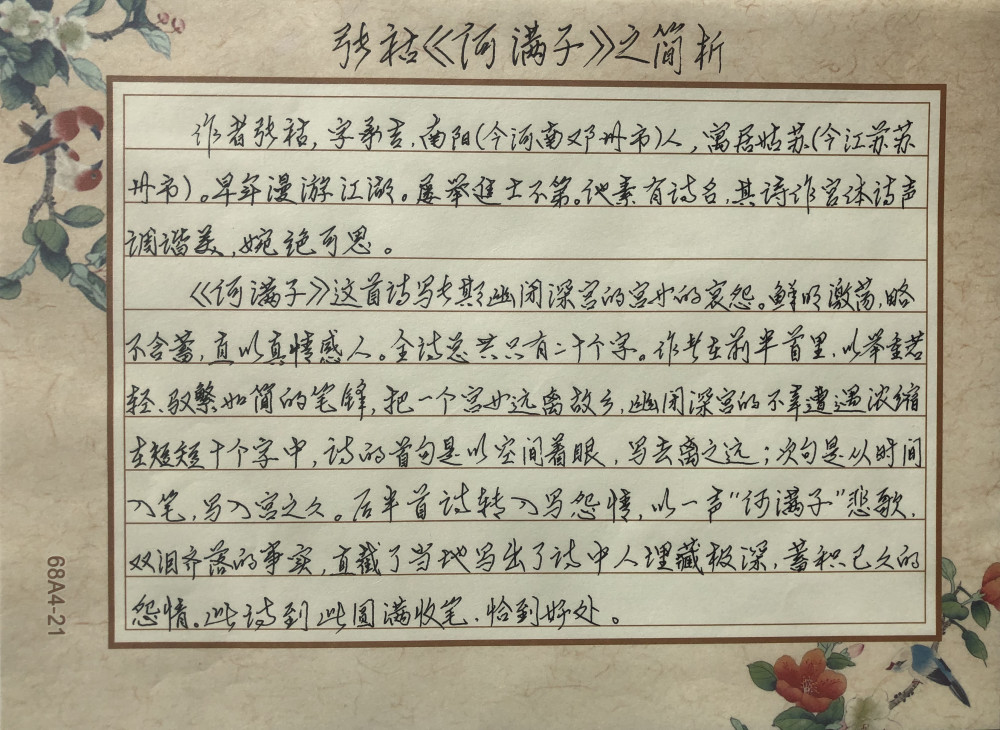 张祜《河满子》之简析
作者张祜，字承吉，南阳（今河南邓州市）人，寓居姑苏（今江苏苏
州市）。早年漫游江湖。屡举进士不第。他素有诗名，其诗作宫体诗声
调谐美，婉绝可思。
《河满子》这首诗写长期幽闭深宫的宫女的哀怨。鲜明激荡，略
不含蓄，直以真情感人。全诗总共只有二十个字。作者在前半首里，以举重若
轻、驭繁如简的笔锋，把一个宫女远离故乡，幽闭深宫的不幸遭遇浓缩
在短短十个字中，诗的首句是以空间着眼，写去离之远；次句是从时间
入笔，写入宫之久。后半首诗转入写怨情，以一声“何满子”悲歌，
双泪齐落的事实，直截了当地写出了诗中人埋藏极深，蓄积已久的
怨情。此诗到此圆满收笔、恰到好处。
68A4-21